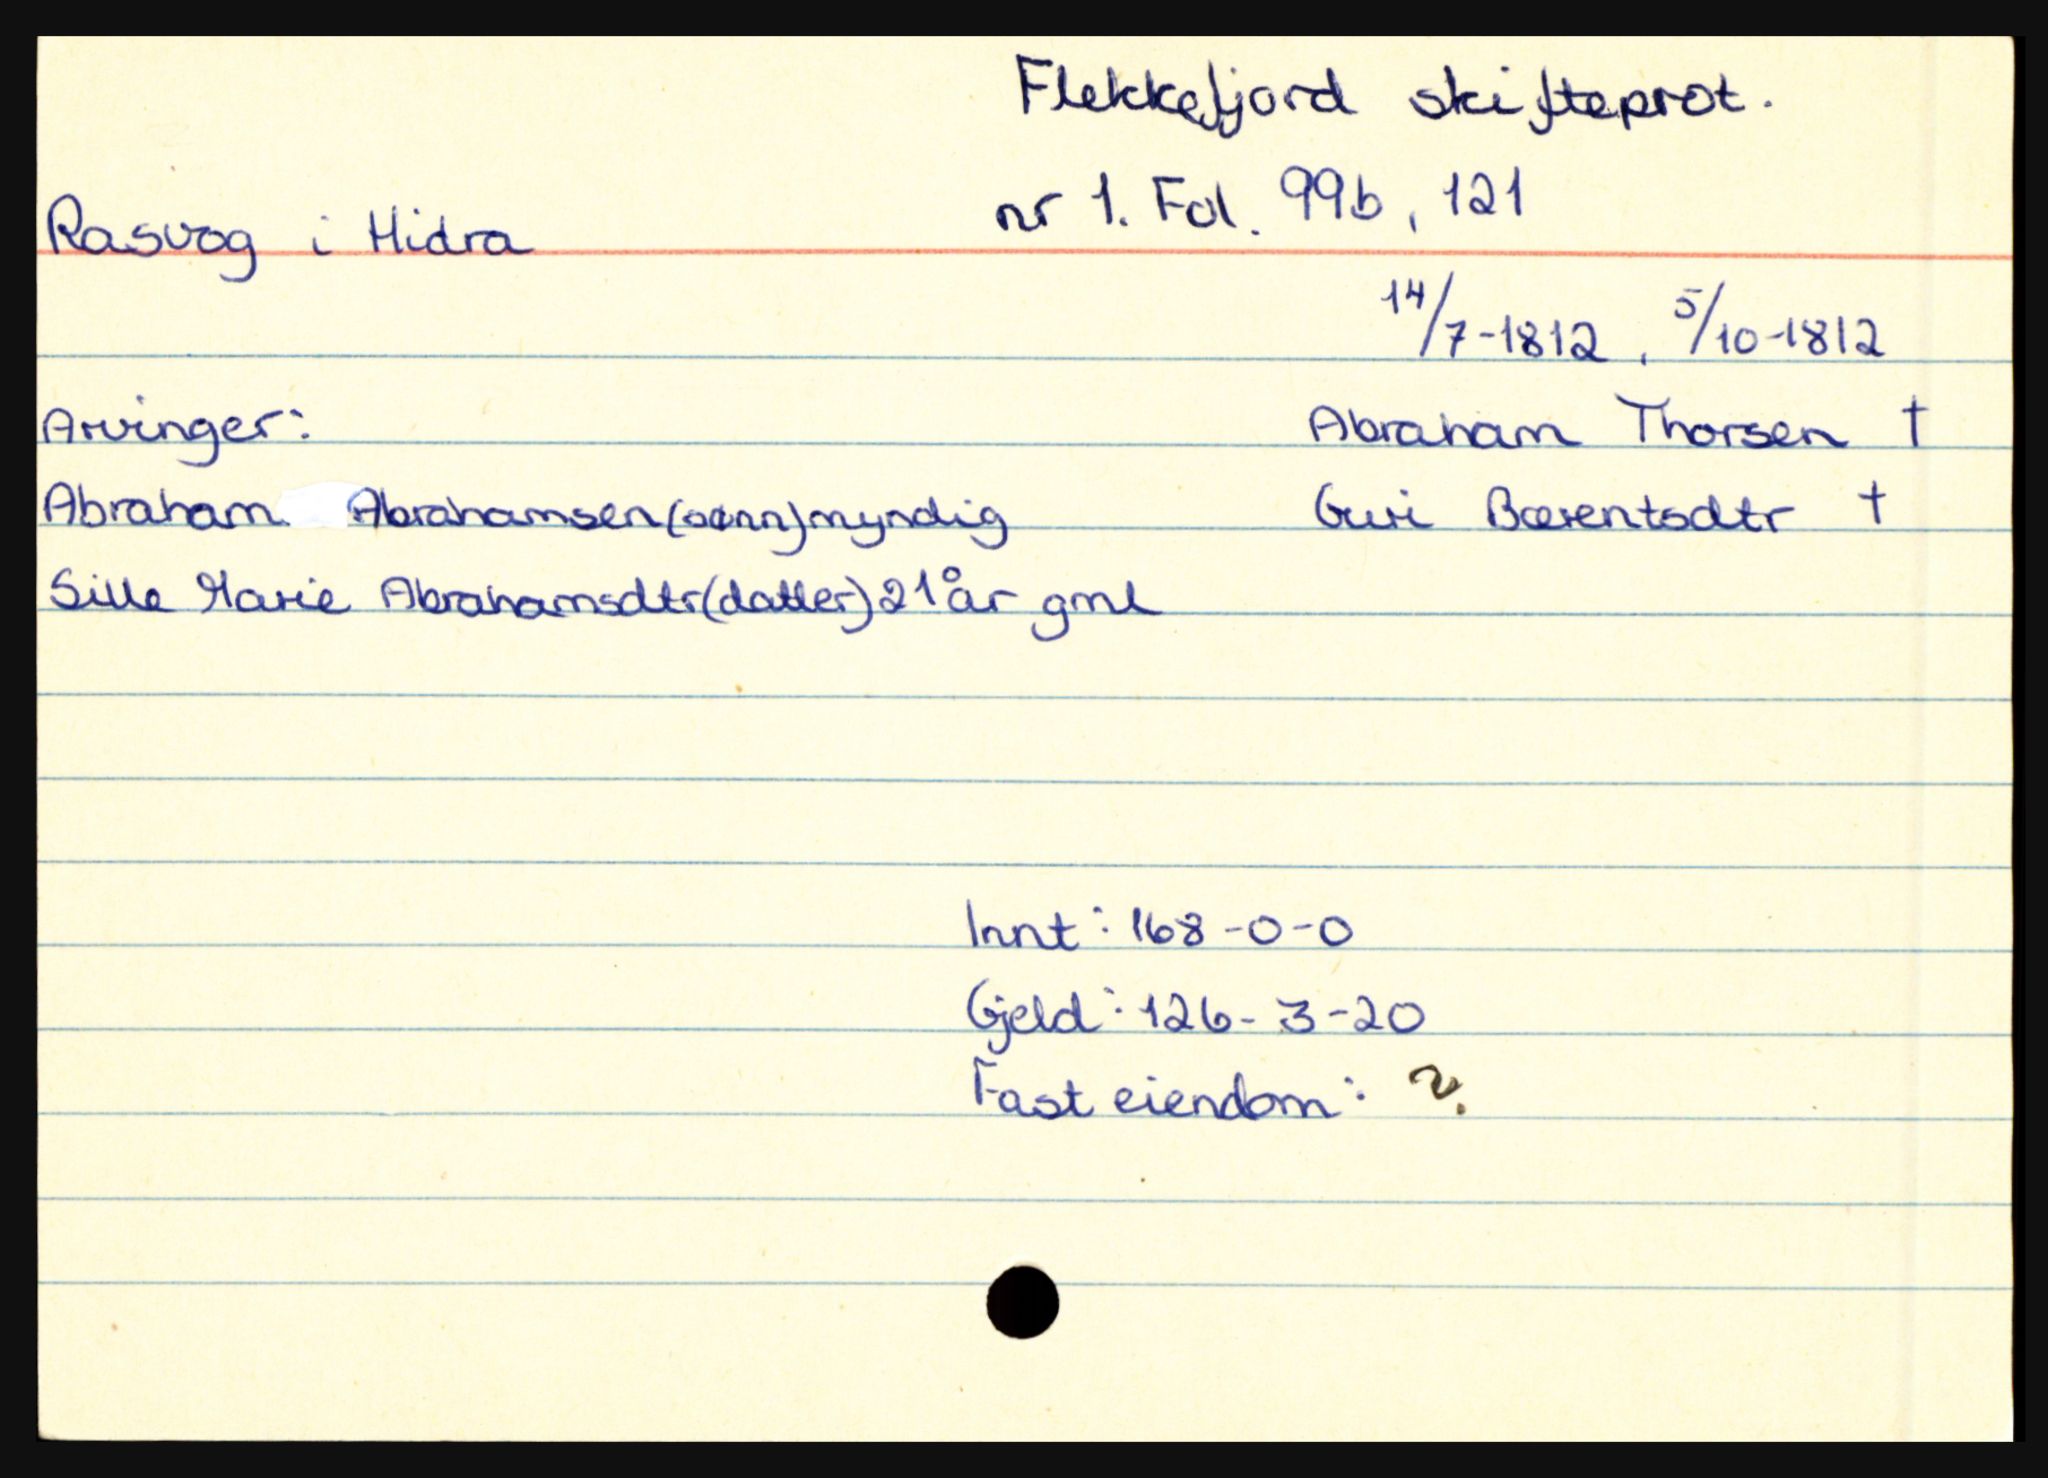 Flekkefjord skifteprot.
nr 1. Fol. 99b, 121
Rasvog i Hidra
14/7-1812, 5/10-1812
Arvinger:
Abraham Thorsen †
Abraham Abrahamsen (sønn) myndig
Guri Bærentsdtr †
Sille Marie Abrahamsdtr (datter) 21 år gml
Innt: 168-0-0
Gjeld: 126-3-20
Fast eiendom: ?